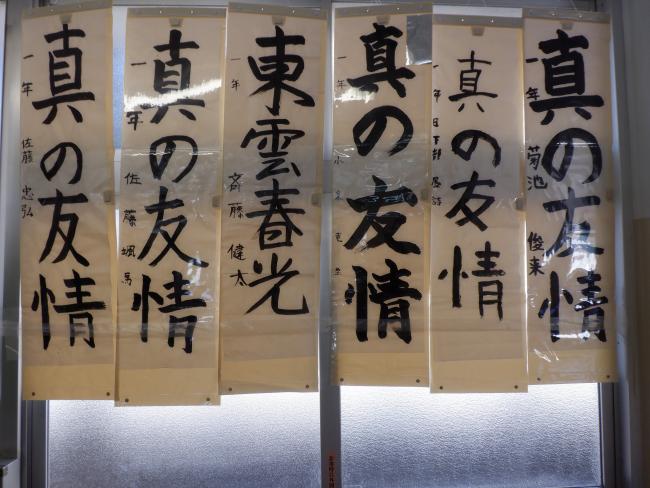 真の友情
一年 佐藤 忠弘
真の友情
一年 佐藤 颯馬
東雲春光
一年 斉藤 健太
真の友情
一年
真の友情
一年 日下部
真の友情
一年 菊池 俊来